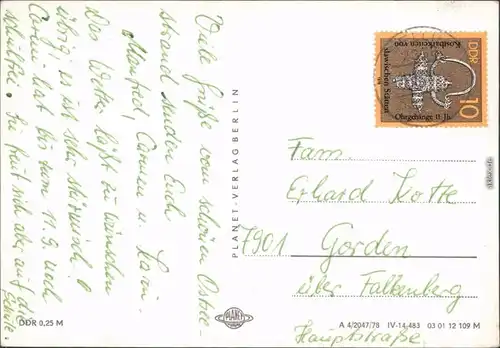 Viele Grüße vom schönen Ostsee-
strand senden Euch
Manfred, Carmen u. Karin
Das Wetter läßt zu wünschen
übrig, es ist sehr stürmisch.
Carmen hat bis zum 11.9. noch
schulfrei. Sie freut sich aber auf die
Schule.
DDR 0,25 M
PLANET-VERLAG BERLIN
PLANET
DDR
10
Kostbarkeiten von
slawischen Stämmen
Ohrgehänge 11. Jh.
Fam.
Erhard Kotte
7901 Gorden
über Falkenberg
Hauptstraße
A 4/2047/78 IV-14-483 03 01 12 109 M